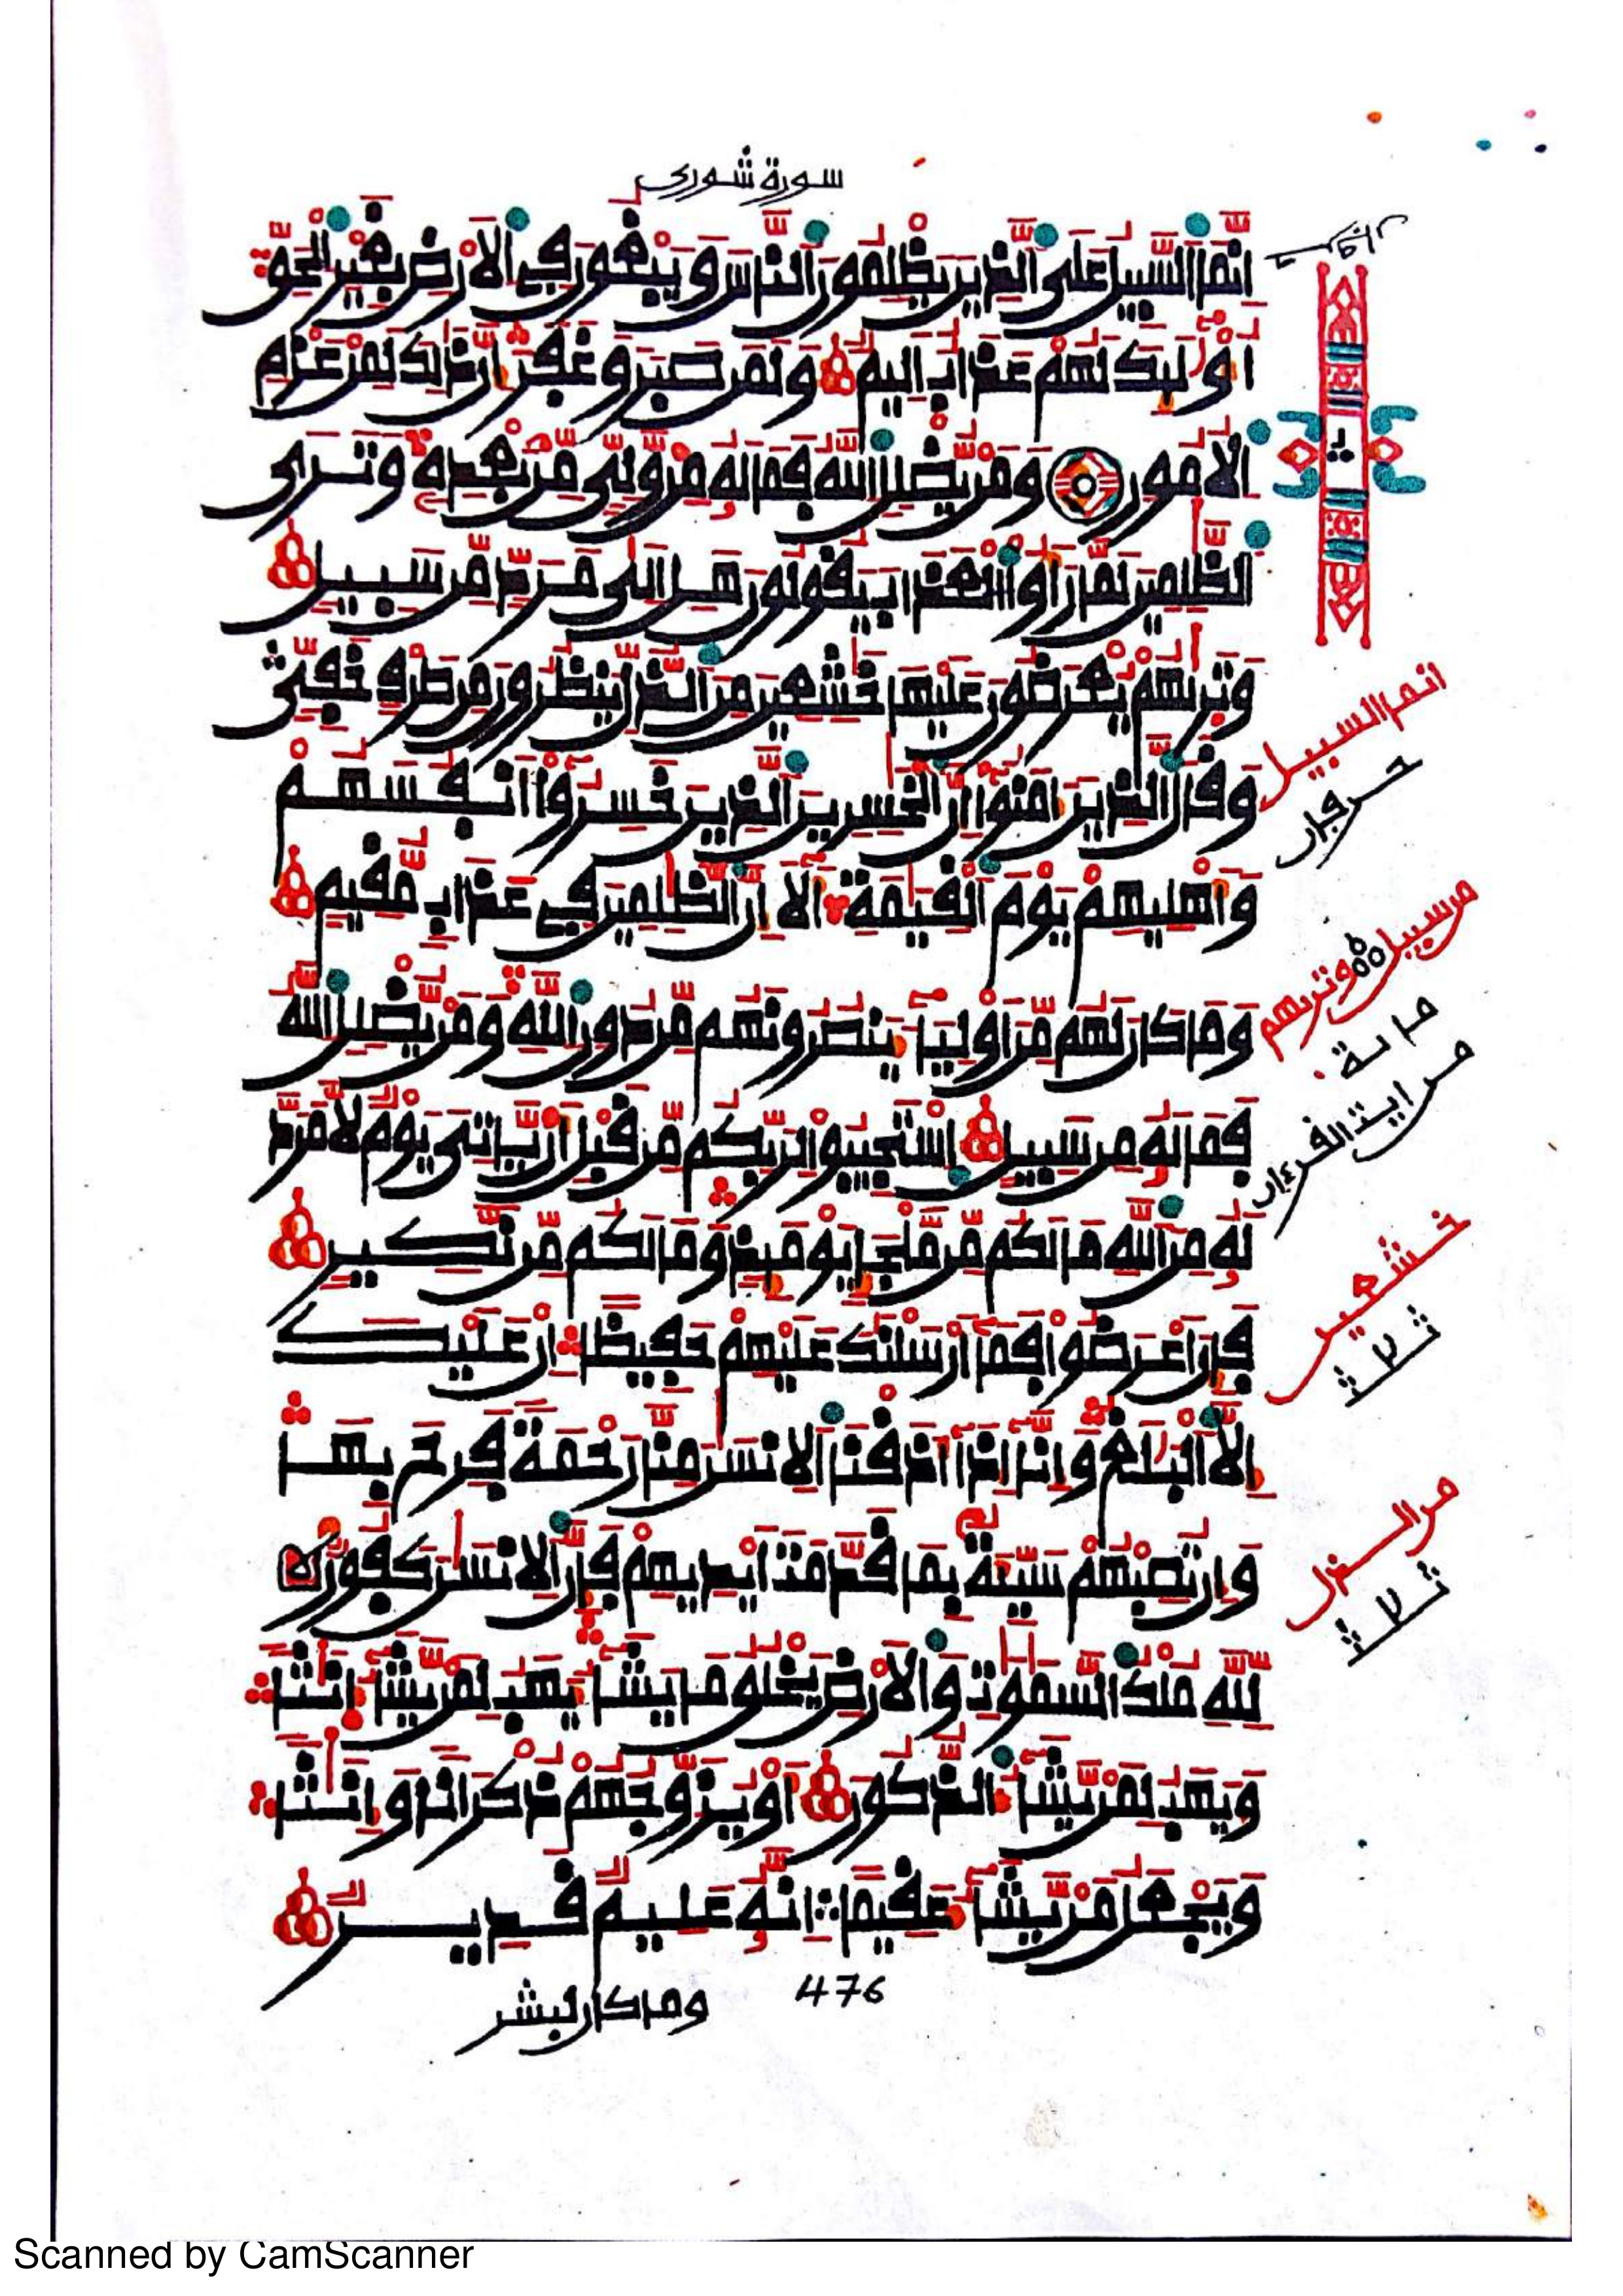 سورة شورى
إِنَّمَا السَّبِيلُ عَلَى الَّذِينَ يَظْلِمُونَ النَّاسَ وَيَبْغُونَ فِي الْأَرْضِ بِغَيْرِ الْحَقِّ
أُوْلَٰئِكَ لَهُمْ عَذَابٌ أَلِيمٌ وَلَمَن صَبَرَ وَغَفَرَ إِنَّ ذَٰلِكَ لَمِنْ عَزْمِ
الْأُمُورِ وَمَن يُضْلِلِ اللَّهُ فَمَا لَهُ مِن وَلِيٍّ مِّن بَعْدِهِ وَتَرَى
الظَّٰلِمِينَ لَمَّا رَأَوُا الْعَذَابَ يَقُولُونَ هَلْ إِلَىٰ مَرَدٍّ مِّن سَبِيلٍ
وَتَرَىٰهُمْ يُعْرَضُونَ عَلَيْهَا خَٰشِعِينَ مِنَ الذُّلِّ يَنظُرُونَ مِن طَرْفٍ خَفِيٍّ
وَقَالَ الَّذِينَ ءَامَنُوا إِنَّ الْخَٰسِرِينَ الَّذِينَ خَسِرُوا أَنفُسَهُمْ
وَأَهْلِيهِمْ يَوْمَ الْقِيَٰمَةِ أَلَا إِنَّ الظَّٰلِمِينَ فِي عَذَابٍ مُّقِيمٍ
وَمَا كَانَ لَهُم مِّنْ أَوْلِيَاءَ يَنصُرُونَهُم مِّن دُونِ اللَّهِ وَمَن يُضْلِلِ اللَّهُ
فَمَا لَهُ مِن سَبِيلٍ اسْتَجِيبُوا لِرَبِّكُم مِّن قَبْلِ أَن يَأْتِيَ يَوْمٌ لَّا مَرَدَّ
لَهُ مِنَ اللَّهِ مَا لَكُم مِّن مَّلْجَإٍ يَوْمَئِذٍ وَمَا لَكُم مِّن نَّكِيرٍ
فَإِنْ أَعْرَضُوا فَمَا أَرْسَلْنَٰكَ عَلَيْهِمْ حَفِيظًا إِنْ عَلَيْكَ
إِلَّا الْبَلَٰغُ وَإِنَّا إِذَا أَذَقْنَا الْإِنسَٰنَ مِنَّا رَحْمَةً فَرِحَ بِهَا
وَإِن تُصِبْهُمْ سَيِّئَةٌ بِمَا قَدَّمَتْ أَيْدِيهِمْ فَإِنَّ الْإِنسَٰنَ كَفُورٌ
لِلَّهِ مُلْكُ السَّمَٰوَٰتِ وَالْأَرْضِ يَخْلُقُ مَا يَشَاءُ يَهَبُ لِمَن يَشَاءُ إِنَٰثًا
وَيَهَبُ لِمَن يَشَاءُ الذُّكُورَ أَوْ يُزَوِّجُهُمْ ذُكْرَانًا وَإِنَٰثًا
وَيَجْعَلُ مَن يَشَاءُ عَقِيمًا إِنَّهُ عَلِيمٌ قَدِيرٌ
476
وما كان لبشر
انما السبيل
حرفان
من سبيل وتريهم
من اية القرءان
خشعين
ثلث
من الذل
ثلث
Scanned by CamScanner